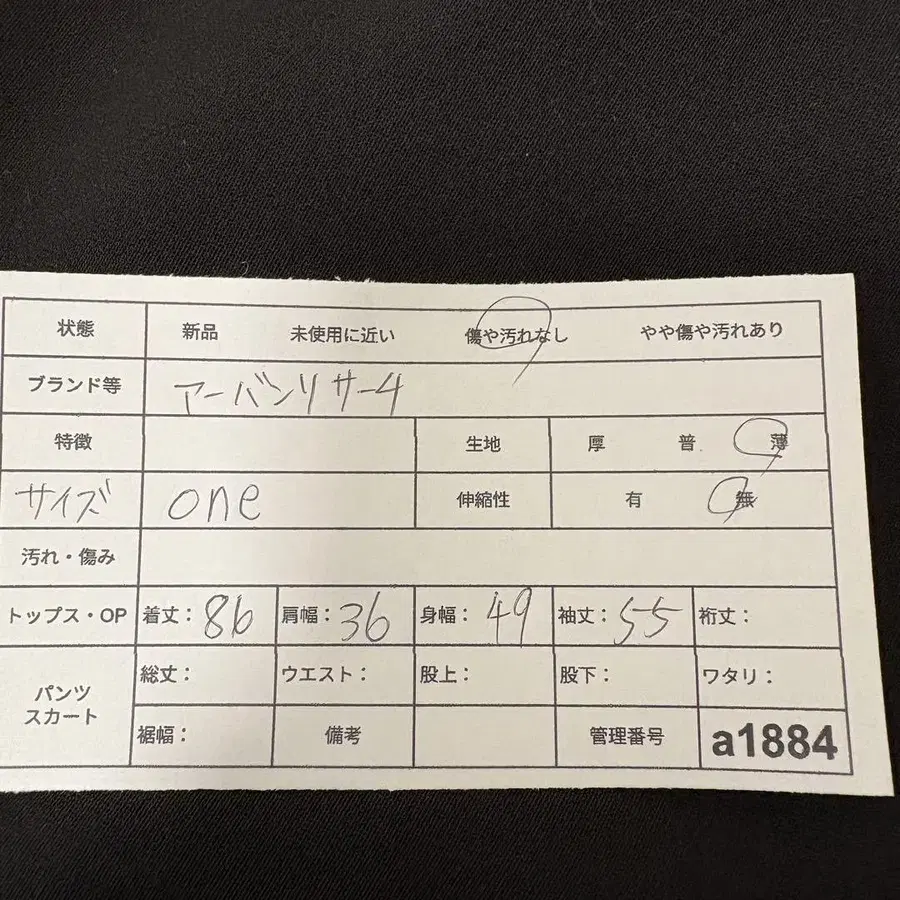 状態 新品 未使用に近い 傷や汚れなし やや傷や汚れあり
ブランド等 アーバンリサーチ
特徴 生地 厚 普 薄
サイズ one 伸縮性 有 無
汚れ・傷み
トップス・OP 着丈：86 肩幅：36 身幅：49 袖丈：55 裄丈：
パンツ 総丈： ウエスト： 股上： 股下： ワタリ：
スカート 裾幅： 備考 管理番号 a1884